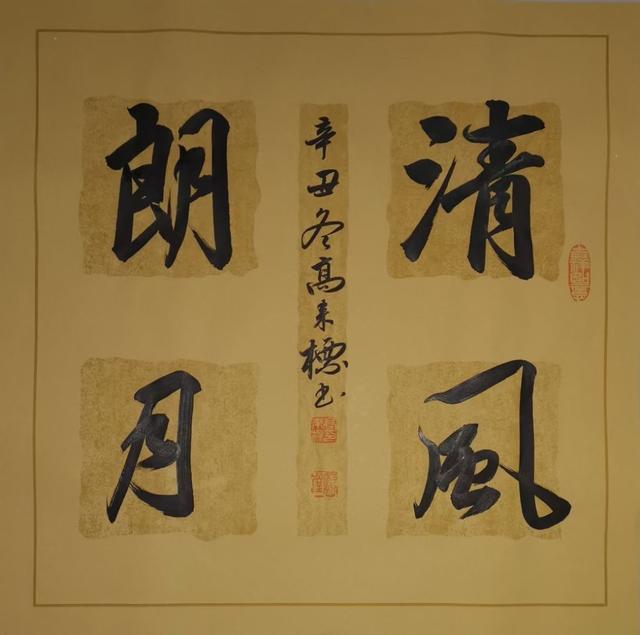 清風
朗月
辛丑冬高来標书